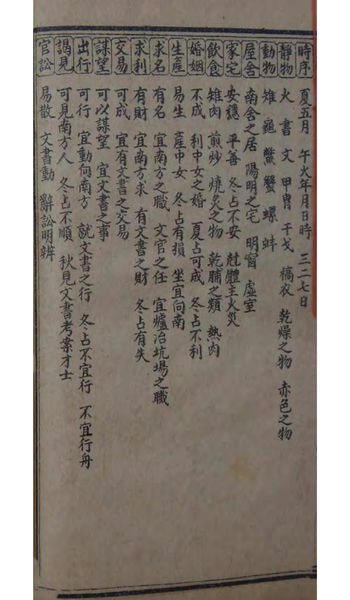 時序 夏五月 午火年月日時 三二七日
靜物 火 書 文 甲冑 干戈 槁衣 乾燥之物 赤色之物
動物 雉 龜 鱉 蟹 螺 蚌
屋舍 南舍之居 陽明之宅 明窗 虛室
家宅 安穩 平善 冬占不安 尅體主火災
飲食 雉肉 煎炒 燒炙之物 乾脯之類 熱肉
婚姻 不成 利中女之婚 夏占可成 冬占不利
生產 易生 產中女 冬占有損 坐宜向南
求名 有名 宜南方之職 文官之任 宜爐冶坑場之職
求利 有財 宜南方求 有文書之財 冬占有失
交易 可成 宜有文書之交易
謀望 可以謀望 宜文書之事
出行 可行 宜動向南方 就文書之行 冬占不宜行 不宜行舟
謁見 可見南方人 冬占不順 秋見文書考案才士
官訟 易散 文書動 辭訟明辨